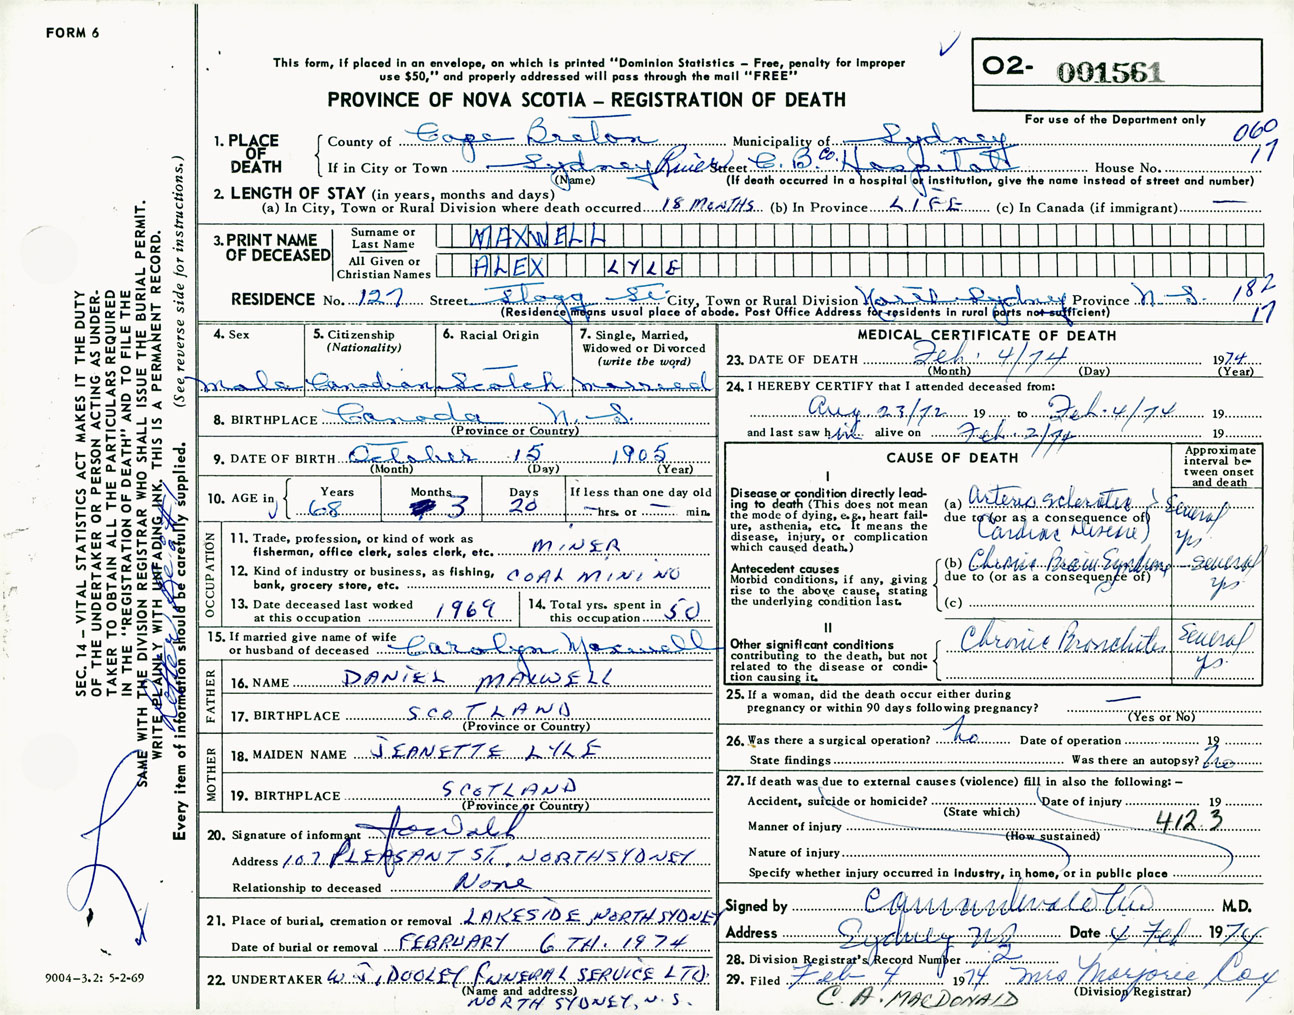 FORM 6
This form, if placed in an envelope, on which is printed "Dominion Statistics – Free, penalty for improper
use $50," and properly addressed will pass through the mail "FREE"
PROVINCE OF NOVA SCOTIA – REGISTRATION OF DEATH
O2- 001561
For use of the Department only
060
17
1. PLACE OF DEATH
County of Cape Breton Municipality of Sydney
If in City or Town Sydney River Street C. B. Co. Hospital House No.
(Name) (If death occurred in a hospital or institution, give the name instead of street and number)
2. LENGTH OF STAY (in years, months and days)
(a) In City, Town or Rural Division where death occurred 18 MONTHS (b) In Province LIFE (c) In Canada (if immigrant) —
3. PRINT NAME OF DECEASED
Surname or Last Name MAXWELL
All Given or Christian Names ALEX LYLE
RESIDENCE No. 127 Street Stagg St. City, Town or Rural Division North Sydney Province N. S. 182
(Residence means usual place of abode. Post Office Address for residents in rural parts not sufficient) 17
4. Sex
male
5. Citizenship (Nationality)
Canadian
6. Racial Origin
Scotch
7. Single, Married, Widowed or Divorced (write the word)
married
8. BIRTHPLACE Canada N. S.
(Province or Country)
9. DATE OF BIRTH October 15 1905
(Month) (Day) (Year)
10. AGE in Years 68 Months 3 Days 20 If less than one day old
—hrs. or — min.
OCCUPATION
11. Trade, profession, or kind of work as
fisherman, office clerk, sales clerk, etc. MINER
12. Kind of industry or business, as fishing,
bank, grocery store, etc. COAL MINING
13. Date deceased last worked
at this occupation 1969
14. Total yrs. spent in
this occupation 50
15. If married give name of wife
or husband of deceased Carolyn Maxwell
FATHER
16. NAME DANIEL MAXWELL
17. BIRTHPLACE SCOTLAND
(Province or Country)
MOTHER
18. MAIDEN NAME JEANETTE LYLE
19. BIRTHPLACE SCOTLAND
(Province or Country)
20. Signature of informant
Address 107 PLEASANT ST. NORTH SYDNEY
Relationship to deceased None
21. Place of burial, cremation or removal LAKESIDE NORTH SYDNEY
Date of burial or removal FEBRUARY 6TH. 1974
22. UNDERTAKER W. J. DOOLEY FUNERAL SERVICE LTD.
(Name and address)
NORTH SYDNEY, N. S.
MEDICAL CERTIFICATE OF DEATH
23. DATE OF DEATH Feb. 4/74 1974
(Month) (Day) (Year)
24. I HEREBY CERTIFY that I attended deceased from:
Aug 23/72 19 to Feb. 4/74 19
and last saw him alive on Feb. 2/74 19
CAUSE OF DEATH
Approximate interval be-
tween onset and death
I
Disease or condition directly lead-
ing to death (This does not
mean the mode of dying, e.g., heart fail-
ure, asthenia, etc. It means the
disease, injury, or complication
which caused death.)
(a) Arteriosclerotic
due to (or as a consequence of)
Cardiac Disease) Several yrs
Antecedent causes
Morbid conditions, if any, giving
rise to the above cause, stating
the underlying condition last.
(b) Chronic Brain Syndrome several yrs
due to (or as a consequence of)
(c)
II
Other significant conditions
contributing to the death, but not
related to the disease or condi-
tion causing it.
Chronic Bronchitis Several yrs.
25. If a woman, did the death occur either during
pregnancy or within 90 days following pregnancy? —
(Yes or No)
26. Was there a surgical operation? no Date of operation 19
State findings Was there an autopsy? no
27. If death was due to external causes (violence) fill in also the following: –
Accident, suicide or homicide? Date of injury 19
(State which)
Manner of injury 412.3
(How sustained)
Nature of injury
Specify whether injury occurred in Industry, in home, or in public place
Signed by M.D.
Address Sydney NS Date 4 Feb 1974
28. Division Registrar's Record Number 2
29. Filed Feb 4 1974 Mrs Marjorie Cox
(Division Registrar)
C. A. MACDONALD
SEC. 14 – VITAL STATISTICS ACT MAKES IT THE DUTY
OF THE UNDERTAKER OR PERSON ACTING AS UNDER-
TAKER TO OBTAIN ALL THE PARTICULARS REQUIRED
IN THE "REGISTRATION OF DEATH" AND TO FILE THE
SAME WITH THE DIVISION REGISTRAR WHO SHALL ISSUE THE BURIAL PERMIT.
WRITE PLAINLY WITH UNFADING INK. THIS IS A PERMANENT RECORD.
Every item of information should be carefully supplied. (See reverse side for instructions.)
9004–3.2: 5-2-69